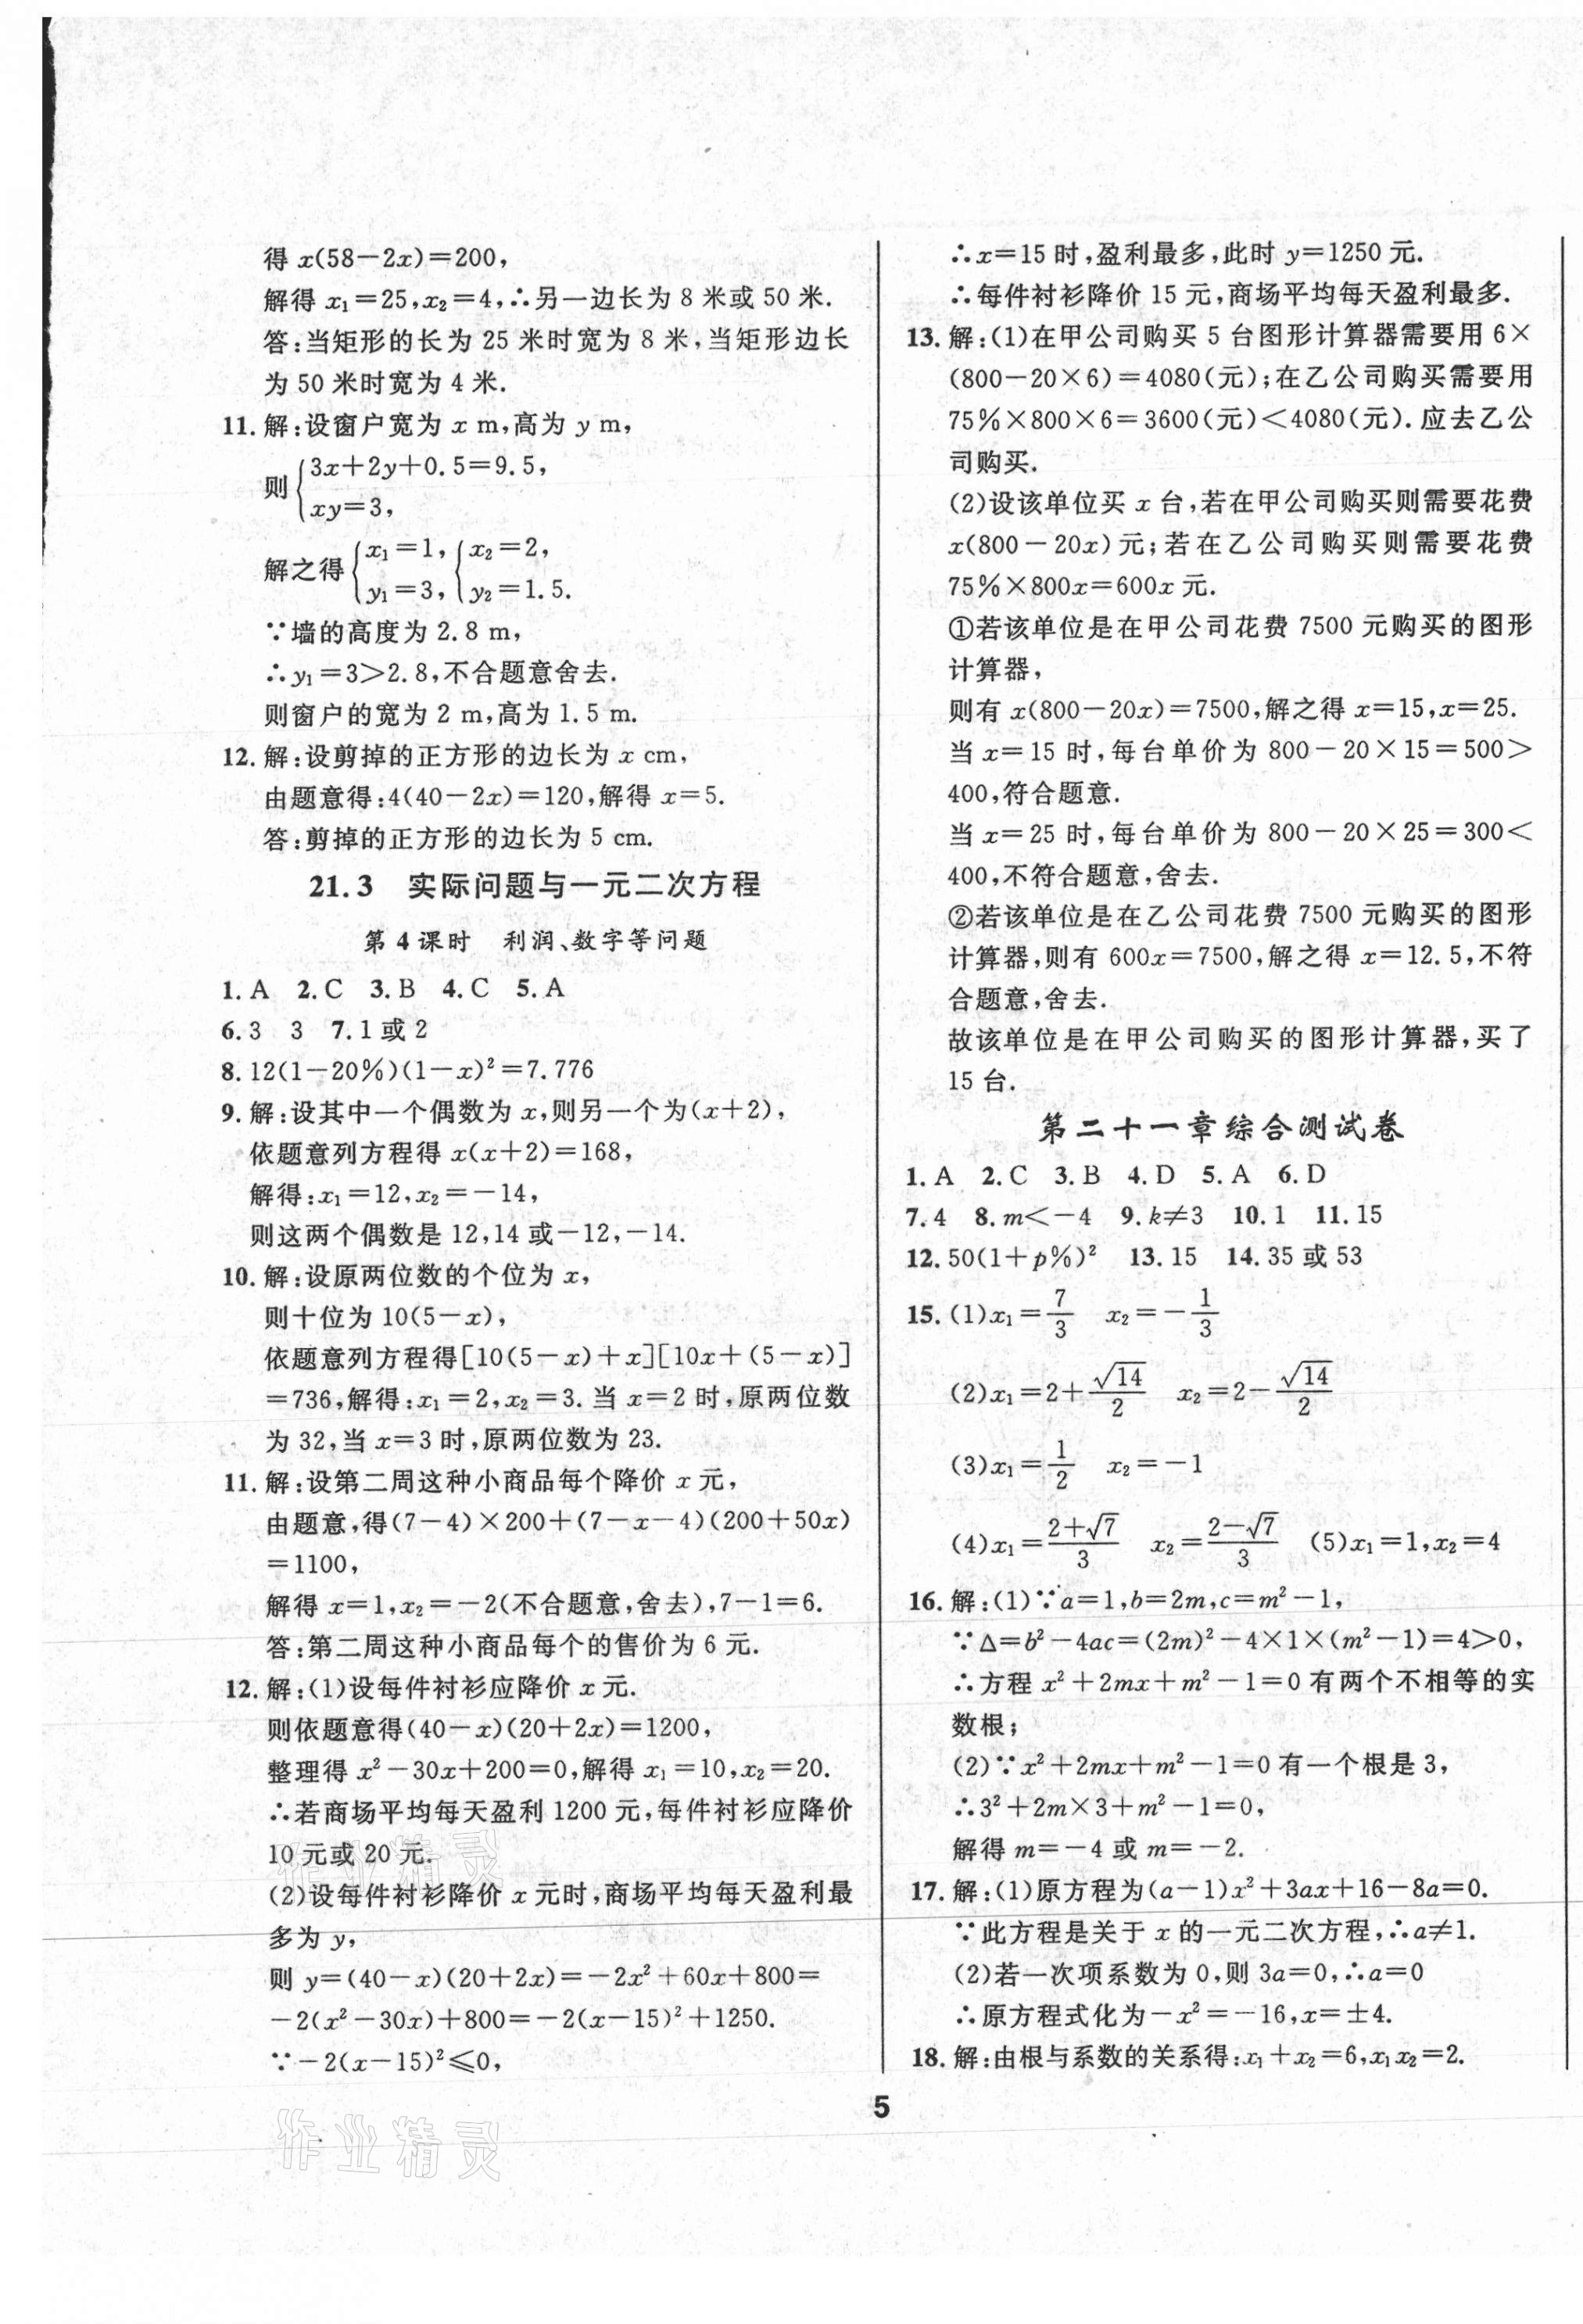 得 x(58-2x)=200,
解得 x₁=25,x₂=4,∴另一边长为 8 米或 50 米.
答:当矩形的长为 25 米时宽为 8 米,当矩形边长
为 50 米时宽为 4 米.
11.解:设窗户宽为 x m,高为 y m,
则{3x+2y+0.5=9.5,
xy=3,
解之得{x₁=1, {x₂=2,
y₁=3, y₂=1.5.
∵墙的高度为 2.8 m,
∴y₁=3>2.8,不合题意舍去.
则窗户的宽为 2 m,高为 1.5 m.
12.解:设剪掉的正方形的边长为 x cm,
由题意得:4(40-2x)=120,解得 x=5.
答:剪掉的正方形的边长为 5 cm.
21.3 实际问题与一元二次方程
第 4 课时 利润、数字等问题
1.A 2.C 3.B 4.C 5.A
6.3 3 7.1 或 2
8.12(1-20%)(1-x)²=7.776
9.解:设其中一个偶数为 x,则另一个为(x+2),
依题意列方程得 x(x+2)=168,
解得:x₁=12,x₂=-14,
则这两个偶数是 12,14 或-12,-14.
10.解:设原两位数的个位为 x,
则十位为 10(5-x),
依题意列方程得[10(5-x)+x][10x+(5-x)]
=736,解得:x₁=2,x₂=3.当 x=2 时,原两位数
为 32,当 x=3 时,原两位数为 23.
11.解:设第二周这种小商品每个降价 x 元,
由题意,得(7-4)×200+(7-x-4)(200+50x)
=1100,
解得 x=1,x₂=-2(不合题意,舍去),7-1=6.
答:第二周这种小商品每个的售价为 6 元.
12.解:(1)设每件衬衫应降价 x 元.
则依题意得(40-x)(20+2x)=1200,
整理得 x²-30x+200=0,解得 x₁=10,x₂=20.
∴若商场平均每天盈利 1200 元,每件衬衫应降价
10 元或 20 元.
(2)设每件衬衫降价 x 元时,商场平均每天盈利最
多为 y,
则 y=(40-x)(20+2x)=-2x²+60x+800=
-2(x²-30x)+800=-2(x-15)²+1250.
∵-2(x-15)²≤0,
∴x=15 时,盈利最多,此时 y=1250 元.
∴每件衬衫降价 15 元,商场平均每天盈利最多.
13.解:(1)在甲公司购买 5 台图形计算器需要用 6×
(800-20×6)=4080(元);在乙公司购买需要用
75%×800×6=3600(元)<4080(元).应去乙公
司购买.
(2)设该单位买 x 台,若在甲公司购买则需要花费
x(800-20x)元;若在乙公司购买则需要花费
75%×800x=600x 元.
①若该单位是在甲公司花费 7500 元购买的图形
计算器,
则有 x(800-20x)=7500,解之得 x=15,x=25.
当 x=15 时,每台单价为 800-20×15=500>
400,符合题意.
当 x=25 时,每台单价为 800-20×25=300<
400,不符合题意,舍去.
②若该单位是在乙公司花费 7500 元购买的图形
计算器,则有 600x=7500,解之得 x=12.5,不符
合题意,舍去.
故该单位是在甲公司购买的图形计算器,买了
15 台.
第二十一章综合测试卷
1.A 2.C 3.B 4.D 5.A 6.D
7.4 8.m<-4 9.k≠3 10.1 11.15
12.50(1+p%)² 13.15 14.35 或 53
15.(1)x₁=7/3 x₂=-1/3
(2)x₁=2+√14/2 x₂=2-√14/2
(3)x₁=1/2 x₂=-1
(4)x₁=(2+√7)/3 x₂=(2-√7)/3 (5)x₁=1,x₂=4
16.解:(1)∵a=1,b=2m,c=m²-1,
∵Δ=b²-4ac=(2m)²-4×1×(m²-1)=4>0,
∴方程 x²+2mx+m²-1=0 有两个不相等的实
数根;
(2)∵x²+2mx+m²-1=0 有一个根是 3,
∴3²+2m×3+m²-1=0,
解得 m=-4 或 m=-2.
17.解:(1)原方程为(a-1)x²+3ax+16-8a=0.
∵此方程是关于 x 的一元二次方程,∴a≠1.
(2)若一次项系数为 0,则 3a=0,∴a=0
∴原方程式化为-x²=-16,x=±4.
18.解:由根与系数的关系得:x₁+x₂=6,x₁x₂=2.
5
作业精灵
作业精灵